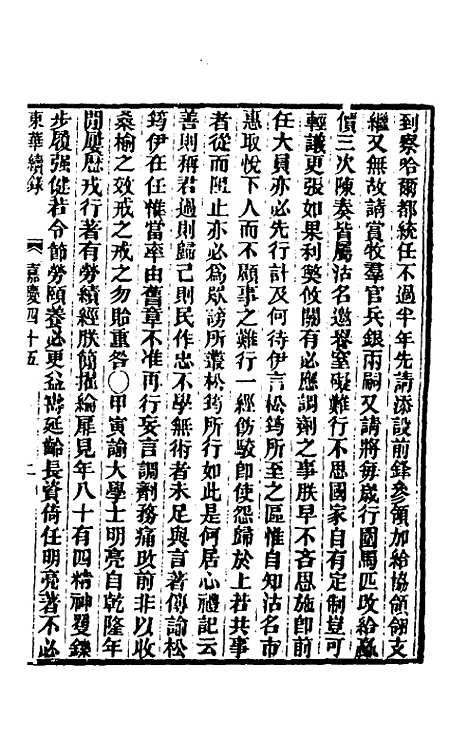 到察哈爾都統任不過半年先請添設前鋒參領加給協領翎支
繼又無故請賞牧羣官兵銀兩嗣又請將每歲行圍馬匹改給
價三次陳奏皆屬沽名邀譽窒礙難行不思國家自有定制豈可
輕議更張如果利獘攸關有必應調劑之事朕早不吝恩施卽前
任大員亦必先行計及何待伊言松筠所至之區惟自知沽名市
惠取悅下人而不顧事之難行一經飭駮卽使怨歸於上若共事
者從而阻止亦必爲眾謗所叢松筠如此是何居心禮記云
善則稱君過則歸己則民作忠不學無術者未足與言著傳諭松
筠伊在任惟當率由舊章不准再行妄言調劑務痛改前非以收
桑榆之效戒之戒之勿貽重咎〇甲寅諭大學士明亮自乾隆年
間屢歷戎行著有勞績經朕簡擢綸扉見年八十有四精神矍鑠
步履强健若令節勞頤養必更益壽延齡長資倚任明亮著不必
東華續錄 嘉慶四十五 二